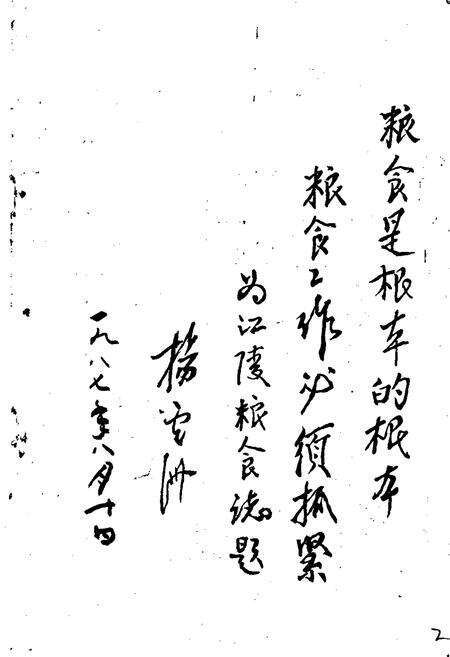 粮食是根本的根本
粮食工作必須抓緊
为江陵粮食誌題
一九八七年八月十四
2